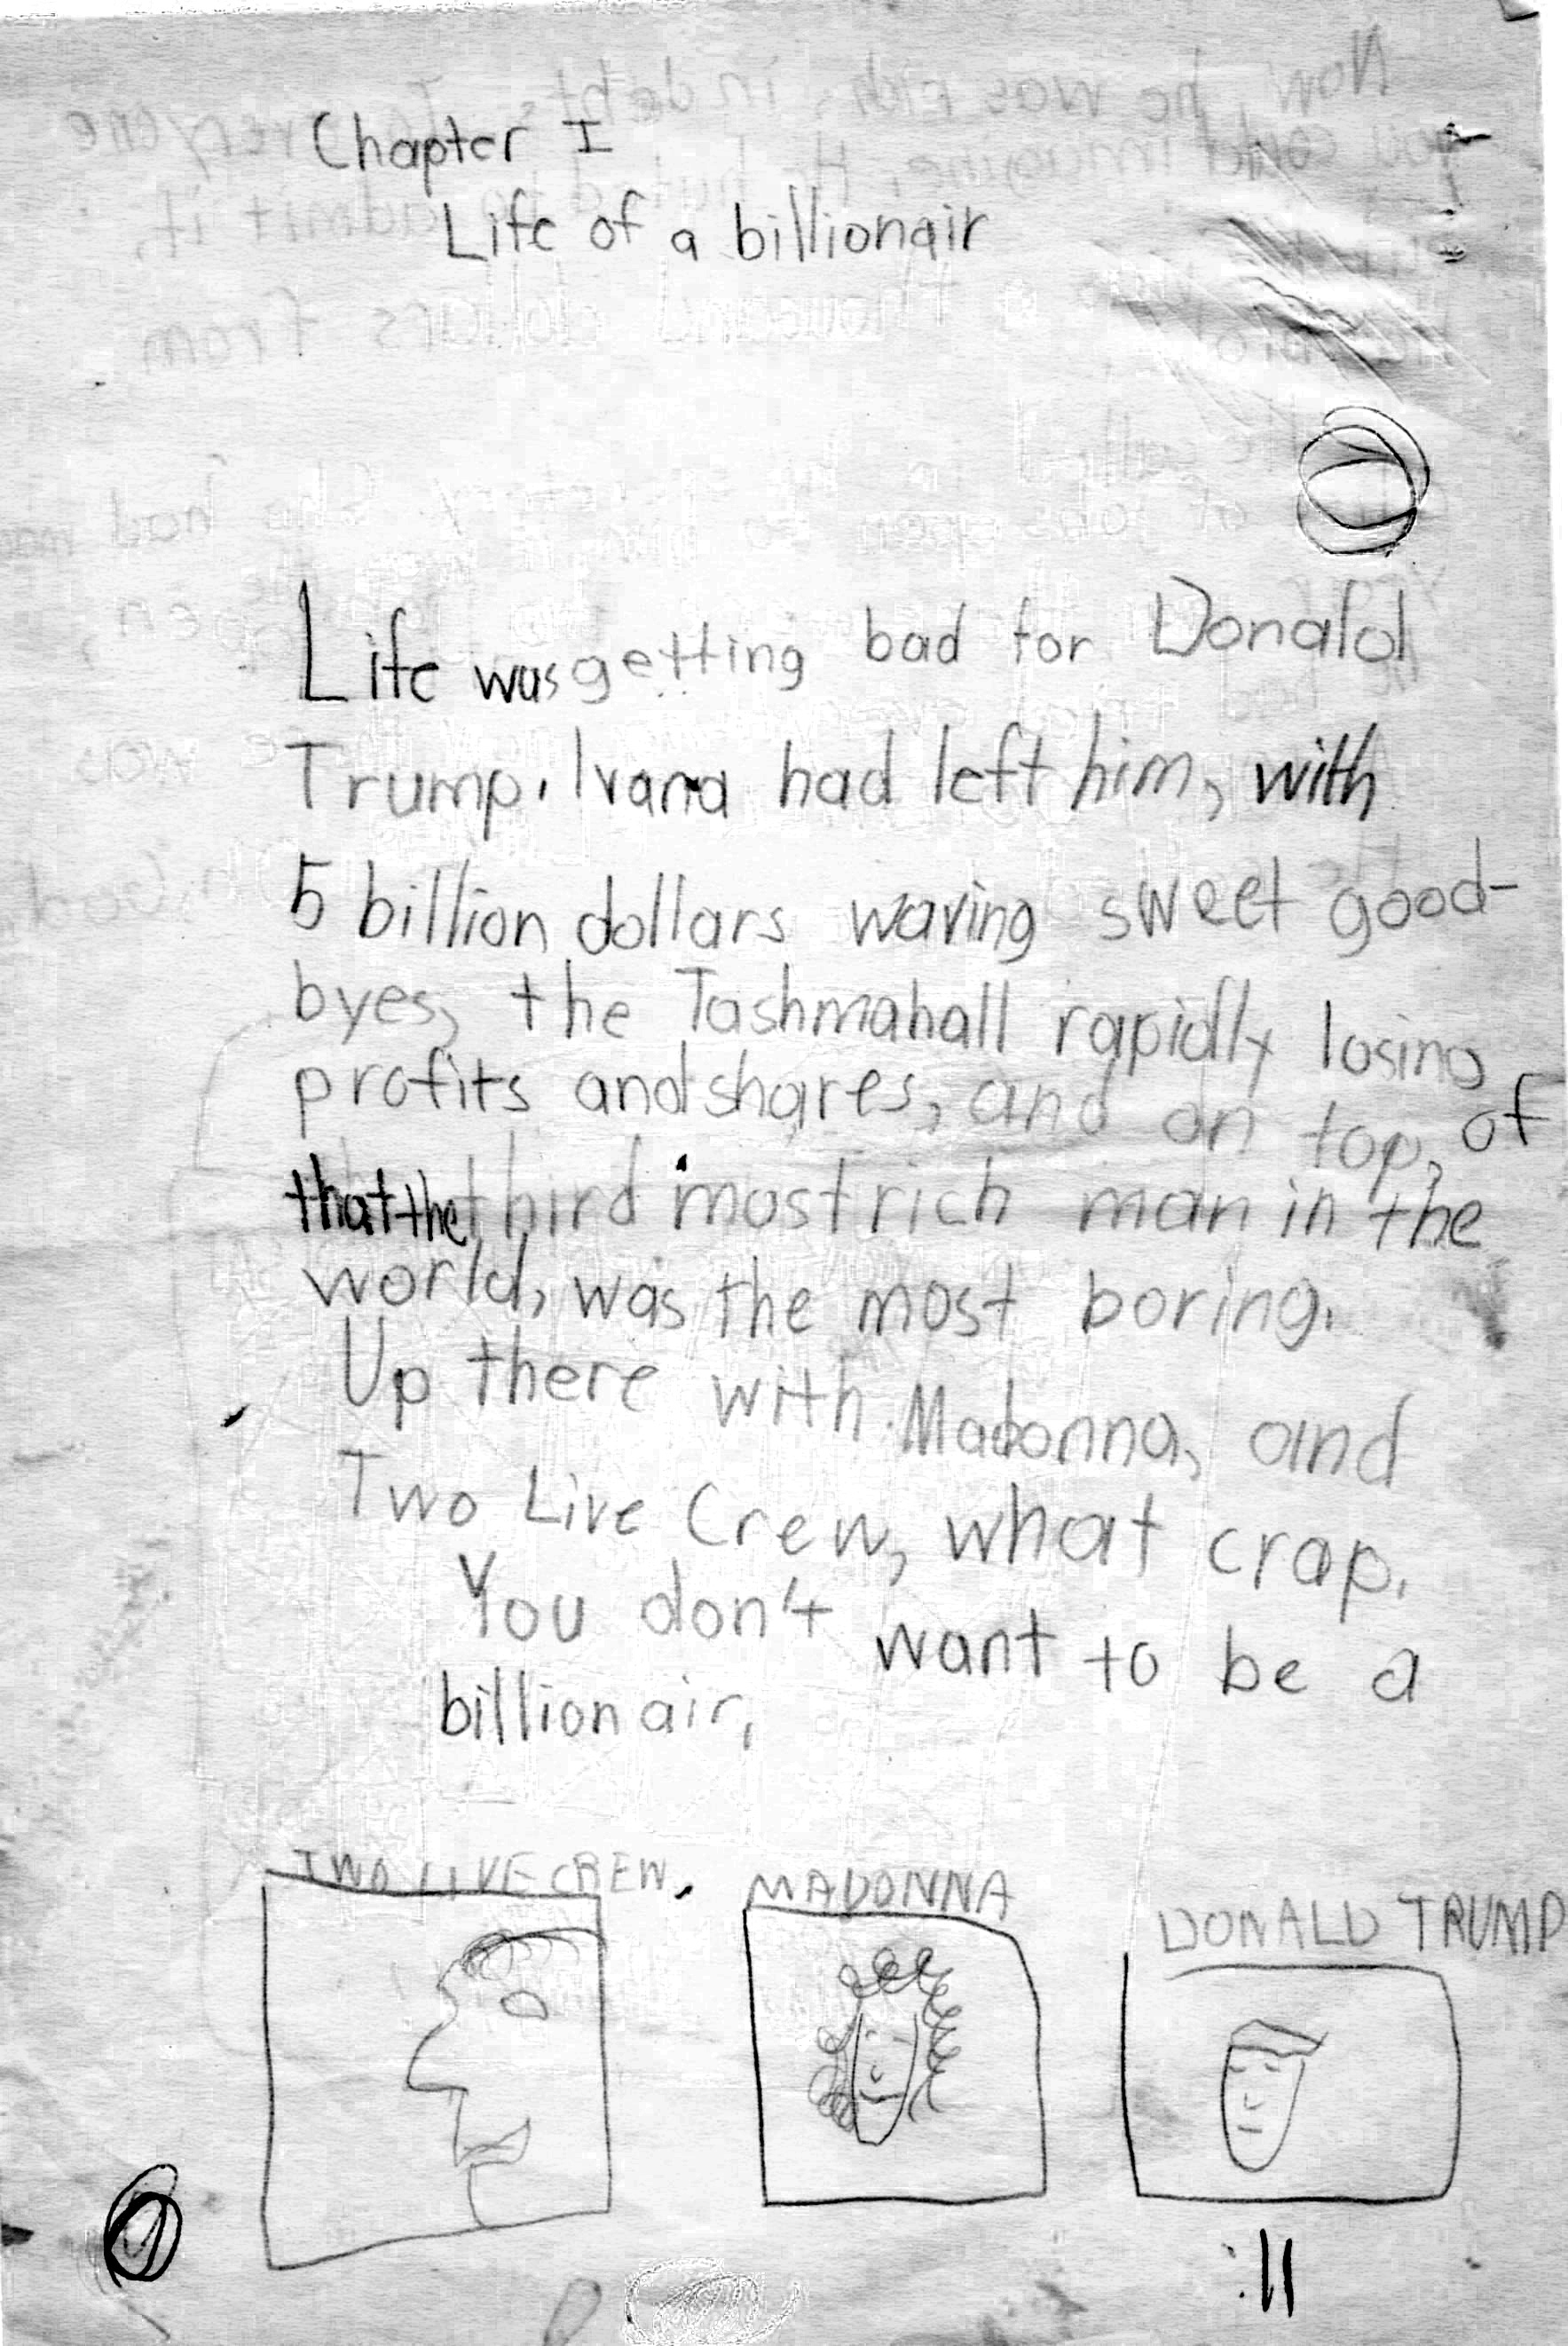 Chapter I
Life of a billionair
Life was getting bad for Donald
Trump. Ivana had left him, with
5 billion dollars waving sweet good-
byes, the Tashmahall rapidly losing
profits and shares, and on top, of
that the third most rich man in the
world, was the most boring.
Up there with Madonna, and
Two Live Crew, what crap.
You don't want to be a
billionair,
TWO LIVE CREW.
MADONNA
DONALD TRUMP